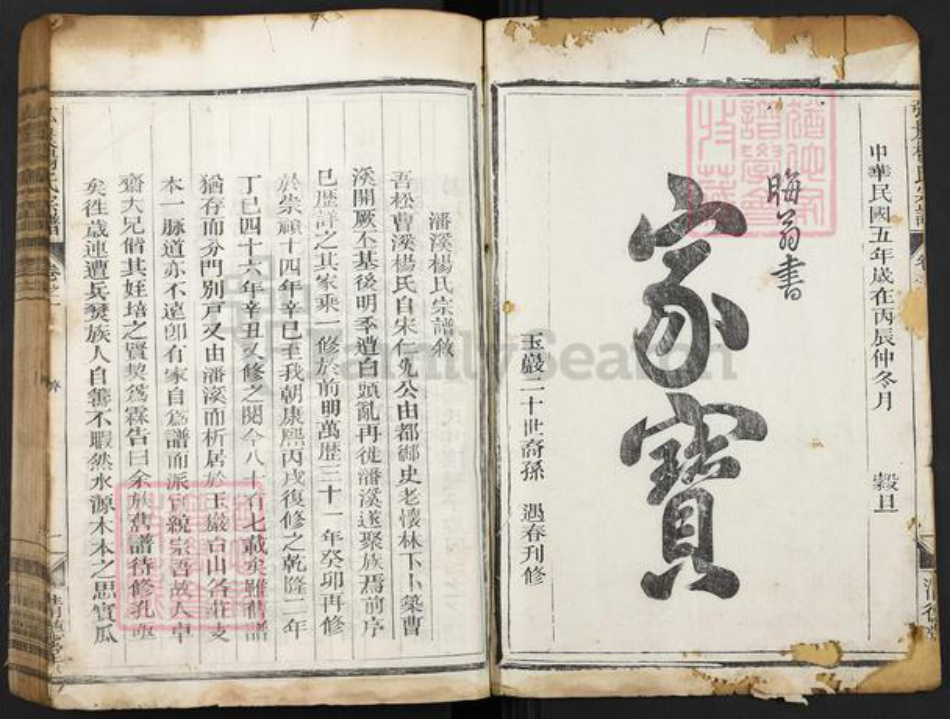 中華民國五年歲在丙辰仲冬月　穀旦
晦翁書
家寶
玉巖二十世裔孫　遇春刊修
潘溪楊氏宗譜敘
吾松曹溪楊氏自宋仁先公由都御史老懷林下卜築曹
溪開厥丕基後明季遭白頭亂再徙潘溪遂聚族焉前序
已歷詳之其家乘一修於前明萬歷三十一年癸卯再修
於崇禎十四年辛巳至我朝康熙丙戌復修之乾隆二年
丁巳四十六年辛丑又修之閱今八十有七載矣雖舊譜
猶存而分門別戶又由潘溪而析居於玉巖台山各莊支
本一脉道亦不遠卽有家自為譜而派實親宗吾故人卓
齋大兄偕其姪培之賢契為霖告曰余族舊譜待修孔亟
矣徃歲連遭兵燹族人自善不暇然水源木本之思實瓜
FamilySearch